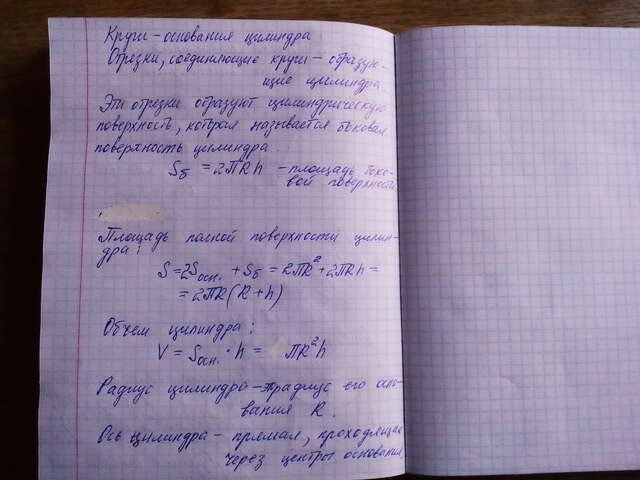 Круги - основания цилиндра
Отрезки, соединяющие круги - образую-
щие цилиндра
Эти отрезки образуют цилиндрическую
поверхность, которая называется боковая
поверхность цилиндра
Sб = 2πRh - площадь боко-
вой поверхности
Площадь полной поверхности цилин-
дра:
S = 2Sосн. + Sб = 2πR² + 2πRh =
= 2πR(R+h)
Объем цилиндра:
V = Sосн. · h = πR²h
Радиус цилиндра - радиус его осно-
вания R.
Ось цилиндра - прямая, проходящая
через центры основания